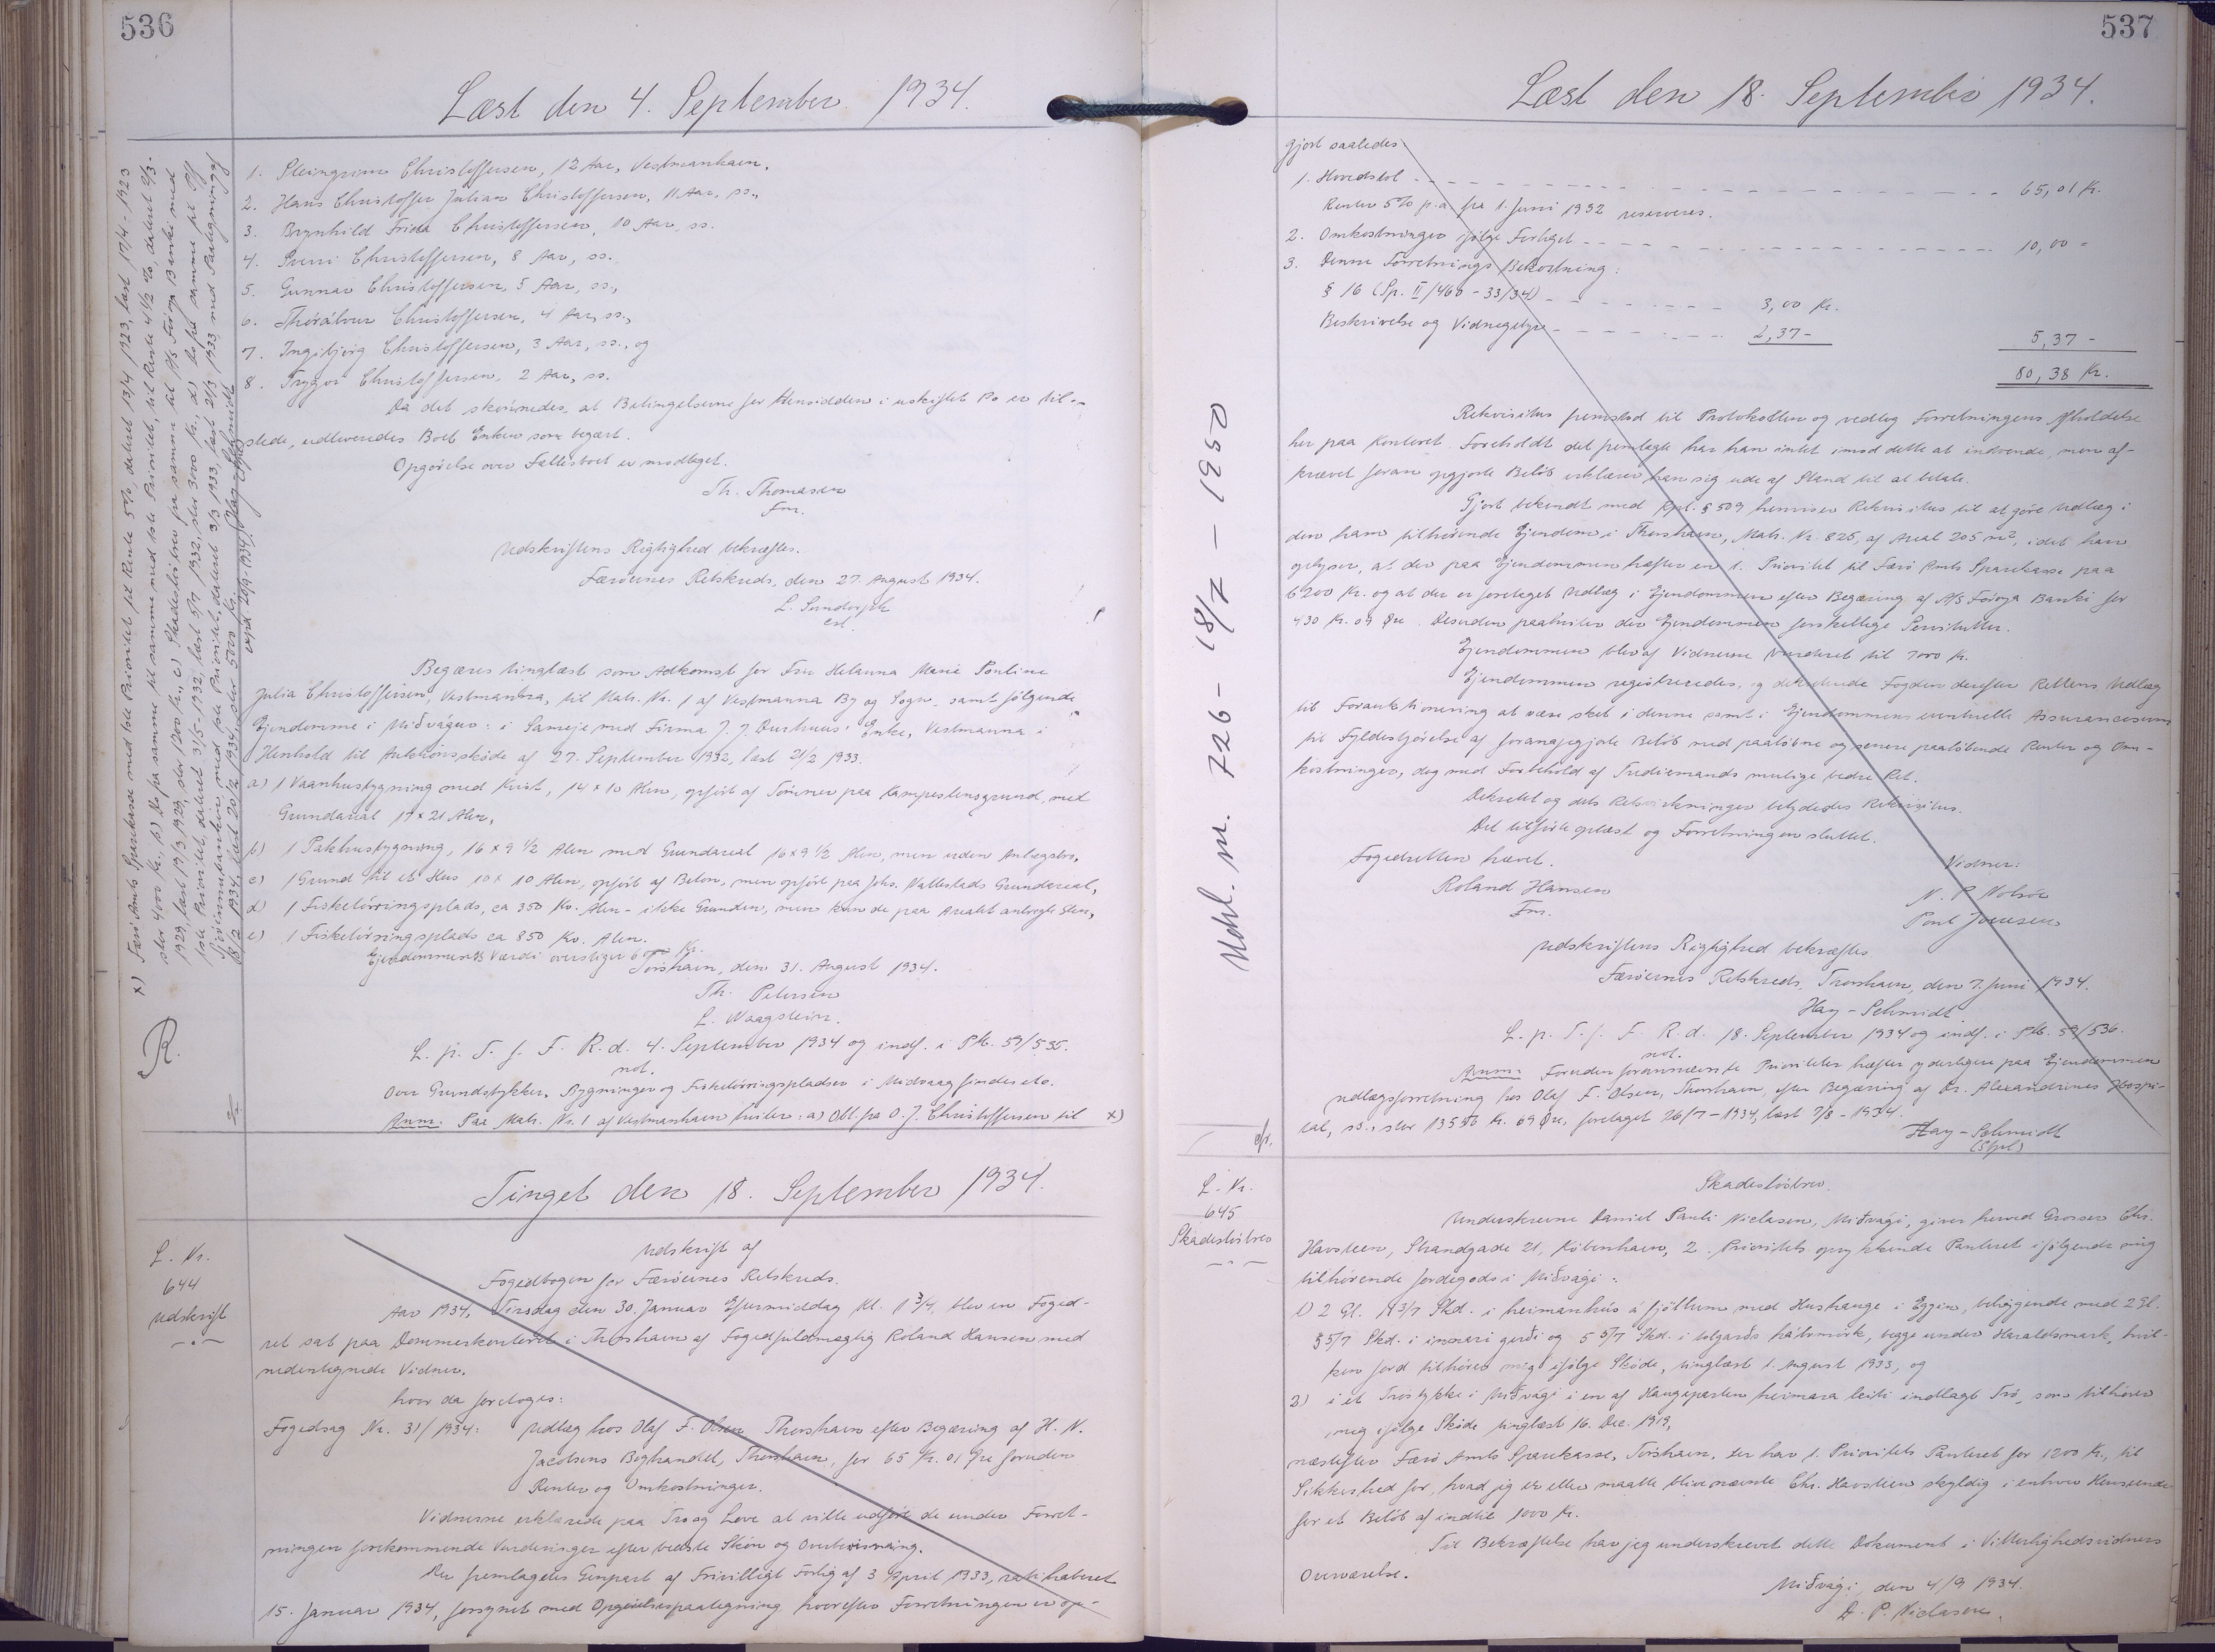 536
Læst den 4. September 1934.
1. Steingrim Christoffersen, 12 Aar, Vestmanhavn,
2. Hans Christoffer Julian Christoffersen, 11 Aar, ss.,
3. Brynhild Frida Christoffersen, 10 Aar, ss.
4. Sverri Christoffersen, 8 Aar, ss.
5. Gunnar Christoffersen, 5 Aar, ss.,
6. Thórálvur Christoffersen, 4 Aar, ss.,
7. Ingibjørg Christoffersen, 3 Aar, ss., og
8. Trygvi Christoffersen, 2 Aar, ss.
Da det skønnedes, at Betingelserne for Hensidden i uskiftet Bo er til-
stede, udleveredes Boet Enken som begært.
Opgørelse over Fællesboet er modtaget.
Th. Thomasen
fm.
Udskriftens Rigtighed bekræftes.
Færøernes Retskreds, den 27. August 1934.
L. Sundorph
cst.
Begæres tinglæst som Adkomst for Fru Helanna Marie Pouline
Julia Christoffersen, Vestmanna, til Matr. Nr. 1 af Vestmanna By og Sogn, samt følgende
Ejendomme i Miðvágur: i Sameje med Firma J. J. Durhuus' Enke, Vestmanna i
Henhold til Auktionsskøde af 27. September 1932, læst 21/2 1933.
a) 1 Vaanhusbygning med Kvist, 14 x 10 Alen, opført af Tømmer paa Kampestensgrund, med
Grundareal 17 x 21 Alen,
b) 1 Pakhusbygning, 16 x 9 1/2 Alen med Grundareal 16 x 9 1/2 Alen, men uden Anlægsbro,
c) 1 Grund til et Hus 10 x 10 Alen, opført af Beton, men opført paa Johs. Vallestads Grundareal,
d) 1 Fisketørringsplads, ca 350 Kv. Alen - ikke Grunden, men kun de paa Arealet anbragte Sten,
e) 1 Fisketørringsplads ca 850 Kv. Alen.
Ejendommens Værdi overstiger Kr.
Tórshavn, den 31. August 1934.
Th. Petersen
L. Waagstein.
L. p. T. f. F. R. d. 4. September 1934 og indf. i PM. 59/535.
not.
Over Grundstykker, Bygninger og Fisketørringspladser i Midvaag findes
Anm: Paa Matr. Nr. 1 af Vestmanhavn hviler: a) Obl. fra O. J. Christoffersen til x)
x) Færø Amts Sparekasse med 1ste Prioritet til Rente 5%, dateret 13/4 1923, læst 17/4 - 1923
stor 4000 Kr., b) Do fra samme til samme med 1ste Prioritet, til Rente 4 1/2 %, dateret 2/3-
1929, læst 19/3 1929, stor 1200 Kr., c) Skadesløsbrev fra samme til A/S Føroya Banki med
1ste Prioritet, dateret 31/5-1932, læst 5/7 1932, stor 3000 Kr., d) Do fra samme til
Sjóvinnubankin med Prioritet, dateret 3/3 1933, læst 21/3 1933 med Paategning af
8/2 1934, læst 20/2 1934, stor 5000 Kr. Hay-Schmidt
expd. 20/9-1934.
R.
Tinget den 18. September 1934.
L. Nr.
644
Udskrift
Udskrift af
Fogedbogen for Færøernes Retskreds.
Aar 1934, Tirsdag den 30. Januar Eftermiddag Kl. 1 3/4, blev en Foged-
ret sat paa Dommerkontoret i Thorshavn af Fogedfuldmægtig Roland Hansen med
nedentegnede Vidner,
hvor da foretoges:
Fogedsag Nr. 31/1934: Udlæg hos Olaf F. Olsen Thorshavn efter Begæring af H. N.
Jacobsens Boghandel, Thorshavn, for 65 Kr. 01 Øre foruden
Renter og Omkostninger.
Vidnerne erklærede paa Tro og Love at ville udføre de under Forret-
ningen forekommende Vurderinger efter bedste Skøn og Overbevisning.
Der fremlagdes Genpart af Frivilligt Forlig af 3 April 1933, ratihaberet
15. Januar 1934, forsynet med paategning, hvorefter Forretningen er op-
537
Læst den 18. September 1934.
gjort saaledes:
1. Hovedstol 65,01 Kr.
Renter 5% p.a. fra 1. Juni 1932 reserveres.
2. Omkostninger ifølge Forliget 10,00 -
3. Denne Forretnings Bekostning:
§ 16 (Sp. II/460 - 33/34) 3,00 Kr.
Beskrivelse og Vidnegebyr 2,37 -
5,37 -
80,38 Kr.
Rekvisitus fremstod til Protokollen og vedtog Forretningens Afholdelse
her paa Kontoret. Foreholdt det fremlagte har han intet imod dette at indvende, men af-
krævet foran opgjorte Beløb erklærer han sig ude af Stand til at betale.
Gjort bekendt med Rpl. § 509 henviser Rekvisitus til at gøre Udlæg i
den ham tilhørende Ejendom i Thorshavn, Matr. Nr. 825, af Areal 205 m², idet han
oplyser, at der paa Ejendommen hæfter en 1. Prioritet til Færø Amts Sparekasse paa
6200 Kr. og at der er foretaget Udlæg i Ejendommen efter Begæring af A/S Føroya Banki for
430 Kr. 09 Øre. Desuden paahviler der Ejendommen forskellige Servitutter.
Ejendommen blev af Vidnerne vurderet til 7000 Kr.
Ejendommen registreredes, og dekreterede Fogden derefter Rettens Udlæg
til Forauktionering at være sket i denne samt i Ejendommens eventuelle Assurancesum
til Fyldestgørelse af foranopgjorte Beløb med paaløbne og senere paaløbende Renter og Om-
kostninger, dog med Forbehold af Trediemands mulige bedre Ret.
Dekretet og dets Retsvirkninger betydedes Rekvisitus.
Det tilførte oplæst og Forretningen sluttet.
Fogedretten hævet.
Vidner:
Roland Hansen
Fm.
N. P. Nolsøe
Poul Joensen
Udskriftens Rigtighed bekræftes
Færøernes Retskreds, Thorshavn, den 7. Juni 1934.
Hay-Schmidt
L. p. T. f. F. R. d. 18. September 1934 og indf. i PM. 59/536.
not.
Anm: Foruden forannævnte Prioriteter hæfter yderligere paa Ejendommen
udlægsforretning hos Olaf F. Olsen, Thorshavn, efter Begæring af Dr. Alexandrines Hospi-
tal, ss., stor Kr. 09 Øre, foretaget 26/7-1934, læst 7/8-1934.
Hay-Schmidt
Udsl. nr. 726 - 18/7 - 1950
L. Nr.
645
Skadesløsbrev
Skadesløsbrev.
Underskrevne Daniel Pauli Niclasen, Miðvági, giver herved Grosser Chr.
Havsteen, Strandgade 21, København, 2. Prioritets oprykkende Panteret i følgende mig
tilhørende Jordegods i Miðvági:
1) 2 Gl. 1 3/7 Skd. i heimanhús á fjøllum med Hushauge i Eggin, beliggende med 2 Gl.
5/7 Skd. i gerði og 5 5/7 Skd. i begge under Haraldsmark, hvil-
ken Jord tilhører mig ifølge Skøde, tinglæst 1. August 1933, og
2) i et Trøstykke i Miðvági i en af Haugeparten heimara leiti indlagt Trø, som tilhører
mig ifølge Skøde tinglæst 16. Dec. 1919,
næstefter Færø Amts Sparekasse, Tórshavn, der har 1. Prioritets Panteret for 1200 Kr., til
Sikkerhed for, hvad jeg er eller maatte blive nævnte Chr. Havsteen skyldig i enhver Henseende
for et Beløb af indtil 1000 Kr.
Til Bekræftelse har jeg underskrevet dette Dokument i Vitterlighedsvidners
Overværelse.
Miðvági, den 4/9 1934.
D. P. Niclasen.